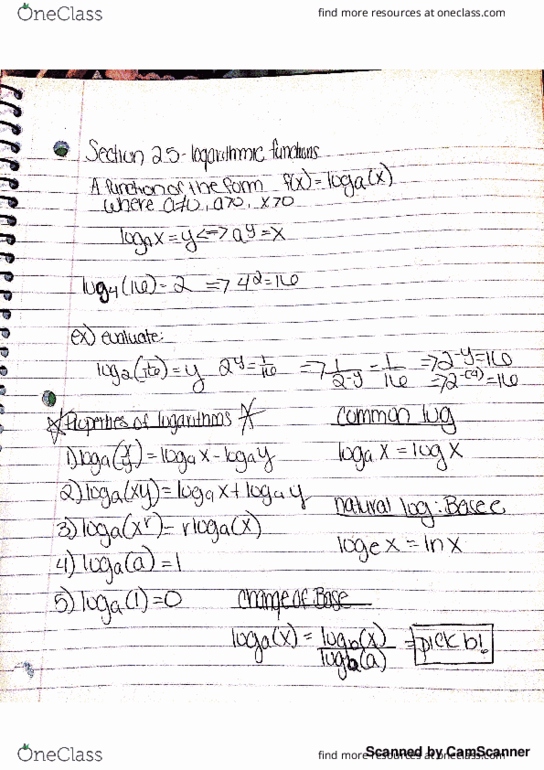 OneClass
find more resources at oneclass.com
Section 2.5 - logarithmic functions
A function of the form f(x) = loga(x)
where a≠0, a>0, x>0
logax = y <=> a^y = x
log4(16) = 2 => 4^2 = 16
ex) evaluate:
log2(1/16) = y 2^y = 1/16 => 1/2^-y = 1/16 => 2^-y = 16
=> 2^-(-4) = 16
Properties of logarithms
common log
1) loga(x/y) = loga x - loga y
loga x = log x
2) loga(xy) = loga x + loga y
natural log: Base e
3) loga(x^r) = r loga(x)
loge x = ln x
4) loga(a) = 1
5) loga(1) = 0
change of Base
loga(x) = logb(x)/logb(a) = pick b!
OneClass
find more resources at oneclass.com
Scanned by CamScanner